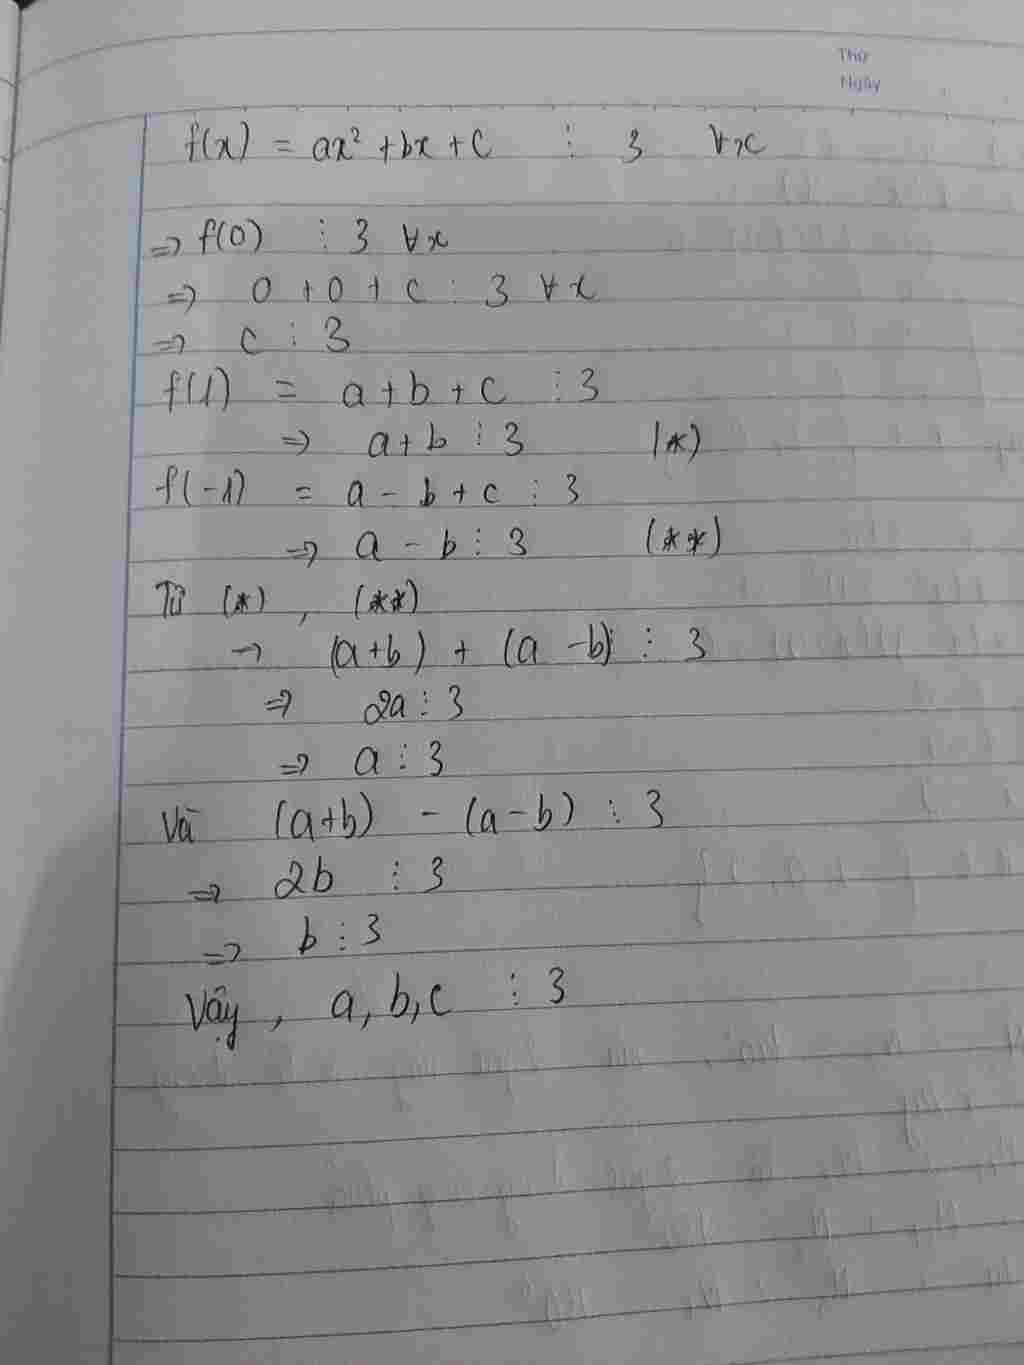 Thứ
Ngày
f(x) = ax² + bx + c ⋮ 3 ∀x
=> f(0) ⋮ 3 ∀x
=> 0 + 0 + c ⋮ 3 ∀x
=> c ⋮ 3
f(1) = a + b + c ⋮ 3
=> a + b ⋮ 3 (*)
f(-1) = a - b + c ⋮ 3
=> a - b ⋮ 3 (**)
Từ (*), (**)
-> (a+b) + (a-b) ⋮ 3
=> 2a ⋮ 3
=> a ⋮ 3
Và (a+b) - (a-b) ⋮ 3
=> 2b ⋮ 3
=> b ⋮ 3
Vậy, a, b, c ⋮ 3